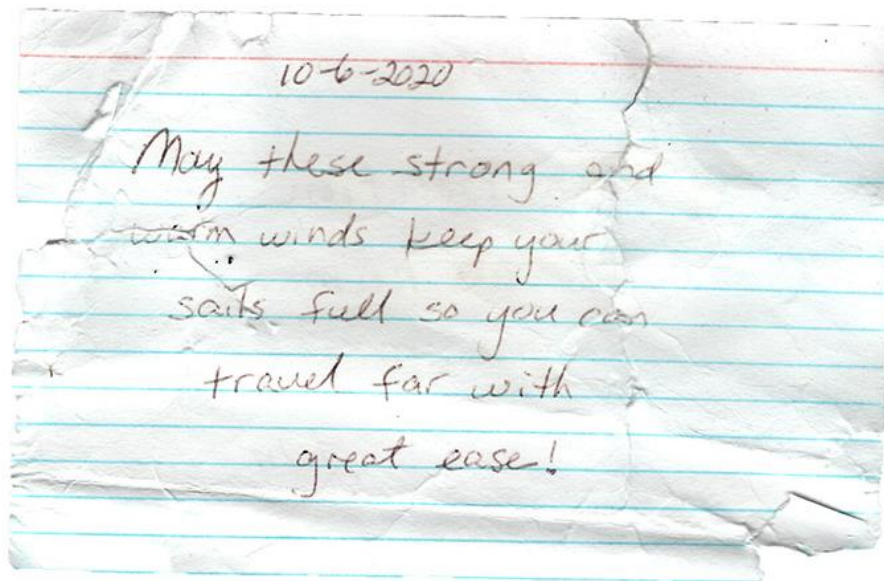 10-6-2020
May these strong and
warm winds keep your
sails full so you can
travel far with
great ease!